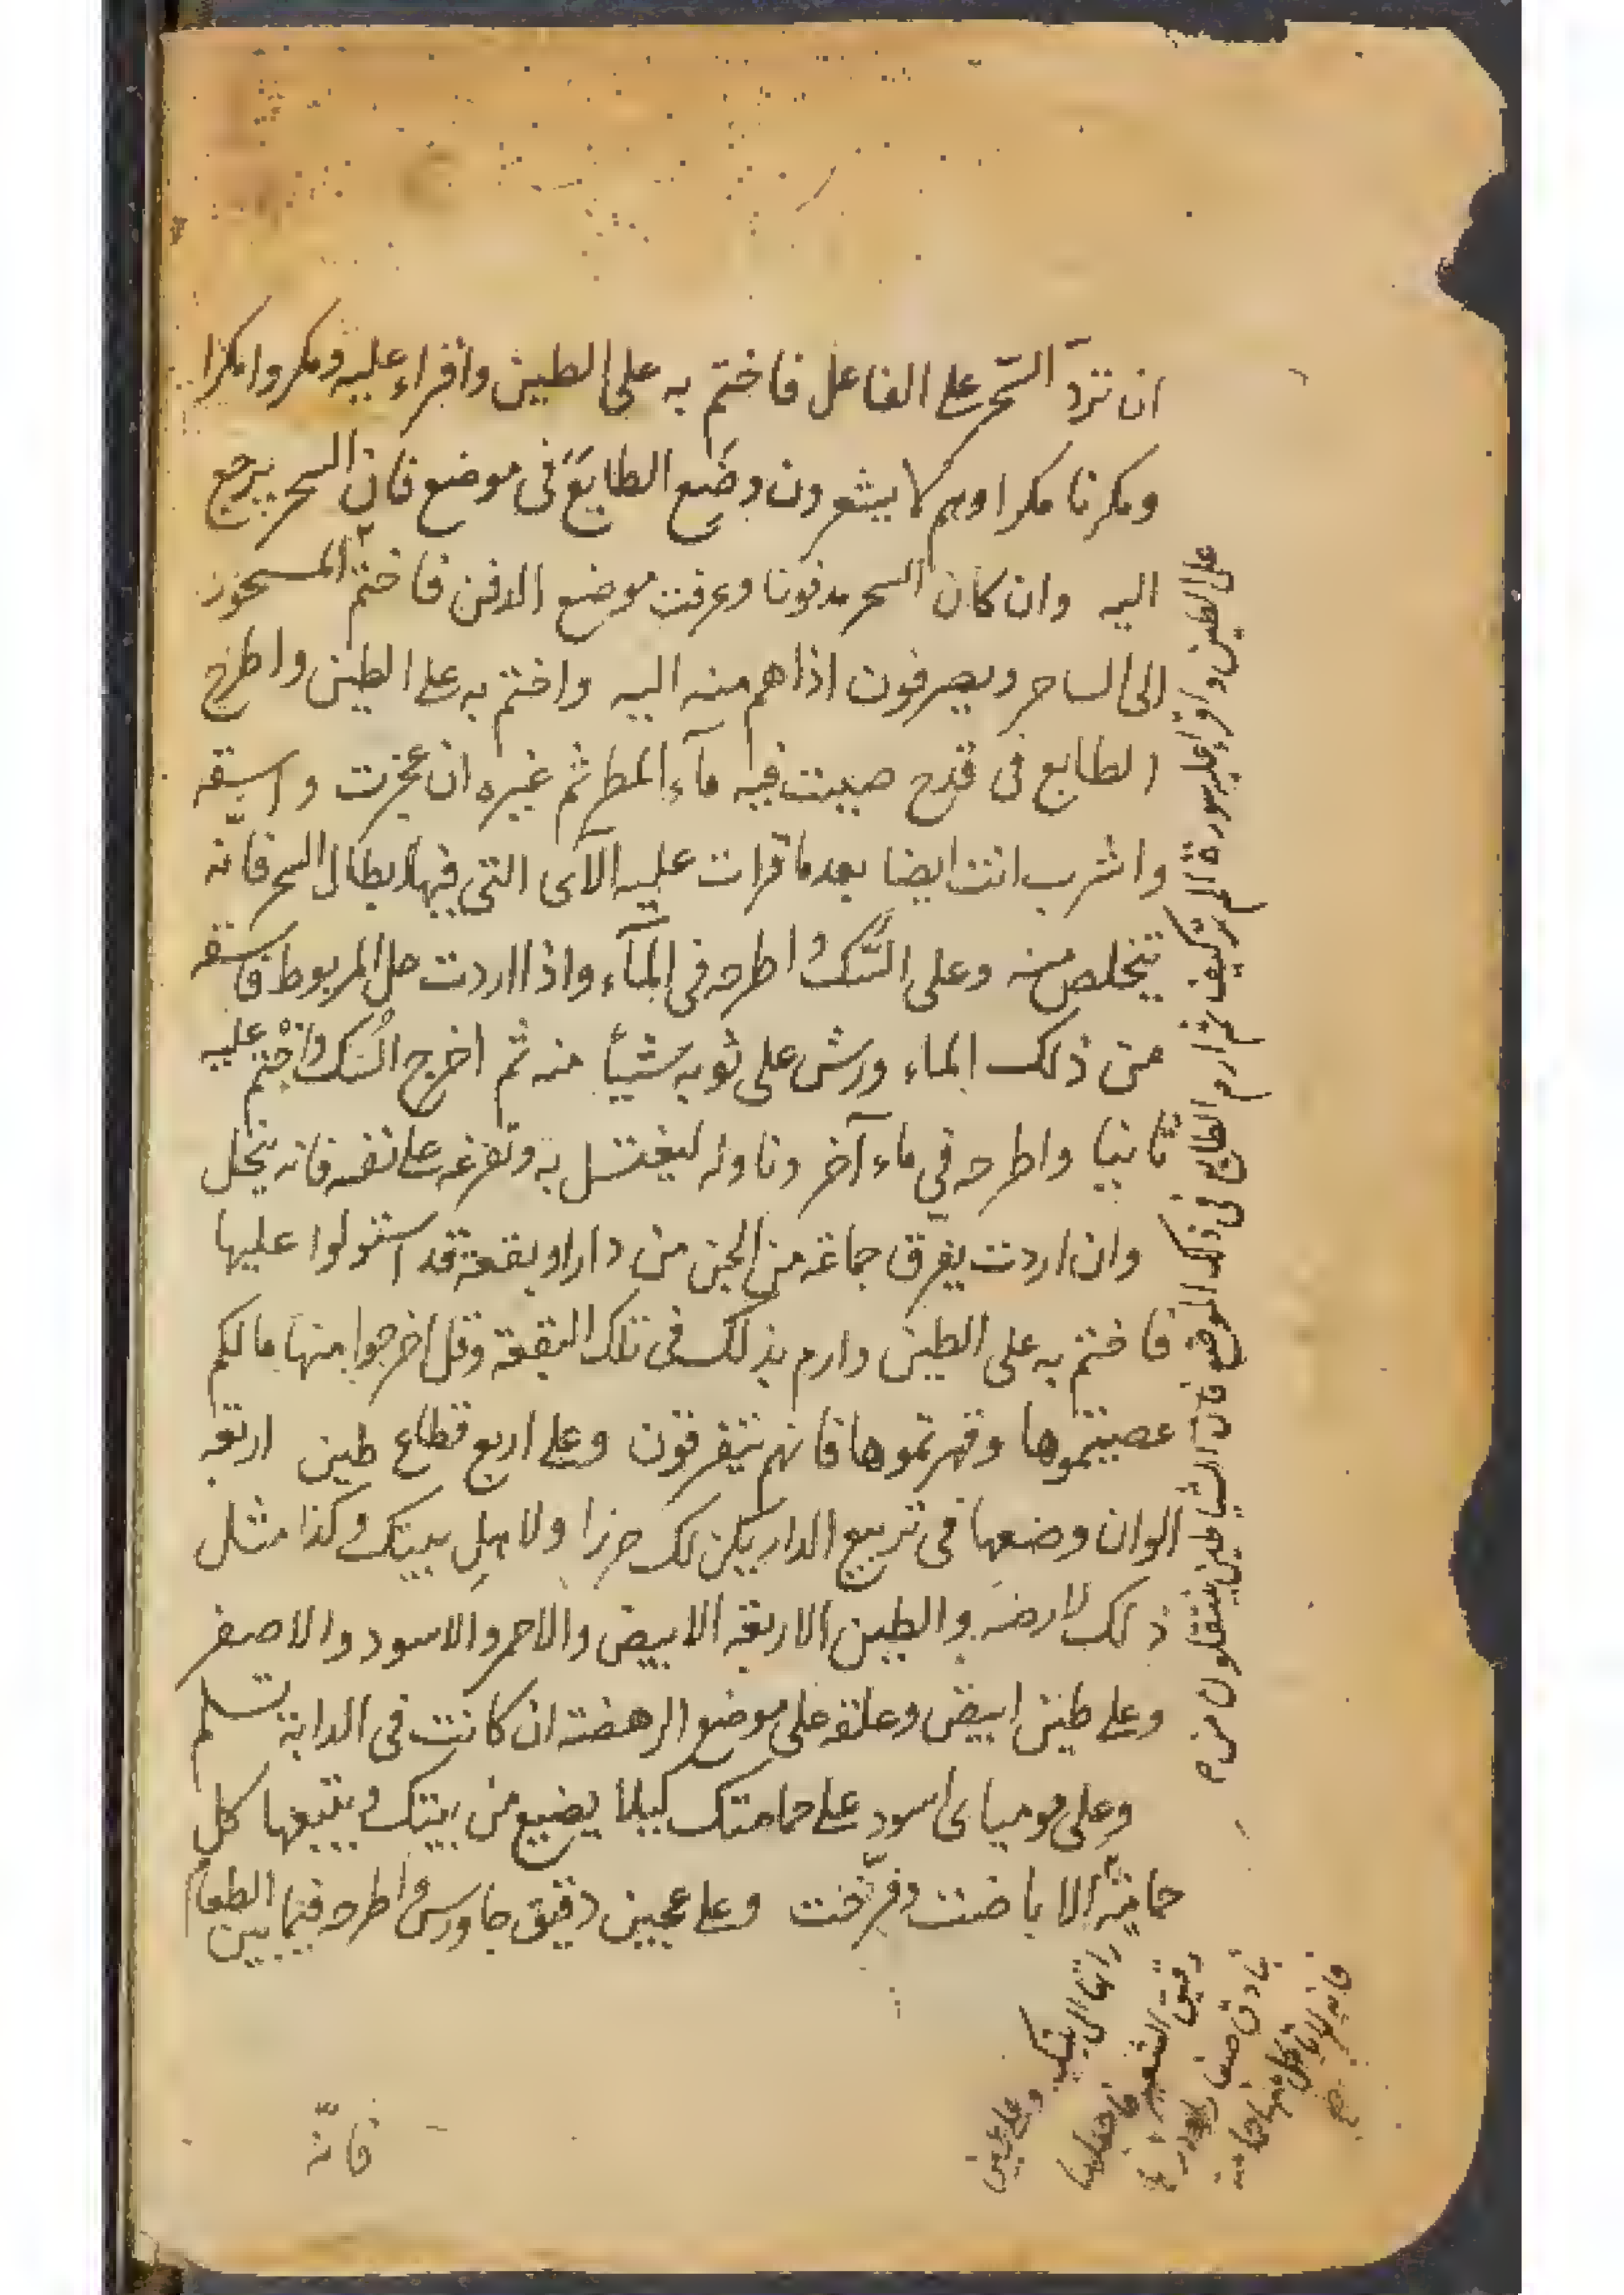 ان ترد السحر على الفاعل فاختم به على الطين واقراء عليه ومكروا مكرا
ومكرنا مكرا وهم لا يشعرون وضع الطابع فى موضع فان السحر يرجع
اليه وان كان السحر مدفونا وعرفت موضع الدفن فاختم المسحور
الى الساحر ويصرفون اذاهم منه اليه واختم به على الطين واطرح
الطابع فى قدح صببت فيه مآء المطر ثم غيره ان عجزت واسقه
واشرب انت ايضا بعد ما قرات عليه الآى التى فيها ابطال السحر فانّه
يتخلص منه وعلى السّك واطرحه فى المآء واذا اردت حل المربوط فاسقه
من ذلك الماء ورش على ثوبه شيأ منه ثم اخرج السُك واخْتم عليه
ثانيا واطرحه في ماء آخر وناوله ليغتسل به وتفرغه على نفسه فانه ينحل
وان اردت يفرق جماعة من الجن من دار او بقعة قد استولوا عليها
فاختم به على الطين وارم بذلك فى تلك البقعة وقل اخرجوا منها مالكم
عصيتموها وقهرتموها فانهم يتفرقون وعلى اربع قطاع طين اربعة
الوان وضعها فى تربيع الدار يكن لك حرزا ولاهل بيتك وكذا مثل
ذلك لارضه والطين الاربعة الابيض والاحمر والاسود والاصفر
وعلى طين ابيض وعلقه على موضع الرهصة ان كانت فى الدابة تسلم
وعلى موميای اسود على حمامتك كيلا يضيع من بيتك ويتبعها كل
حمامة الا باضت وفرّخت وعلى عجين دقيق جاورس واطرحه فيما بين الطعام
على الطين واقراء عليه سورة الم تر كيف ثم ارم الطابع فى ذلك الموضع فان الشياطين ينتقلون من
راتها الى بيتك وعلى طين
دقيق الشعير فاجعلها
بنادق صغار
فانه لا ياكل منها
فانّه